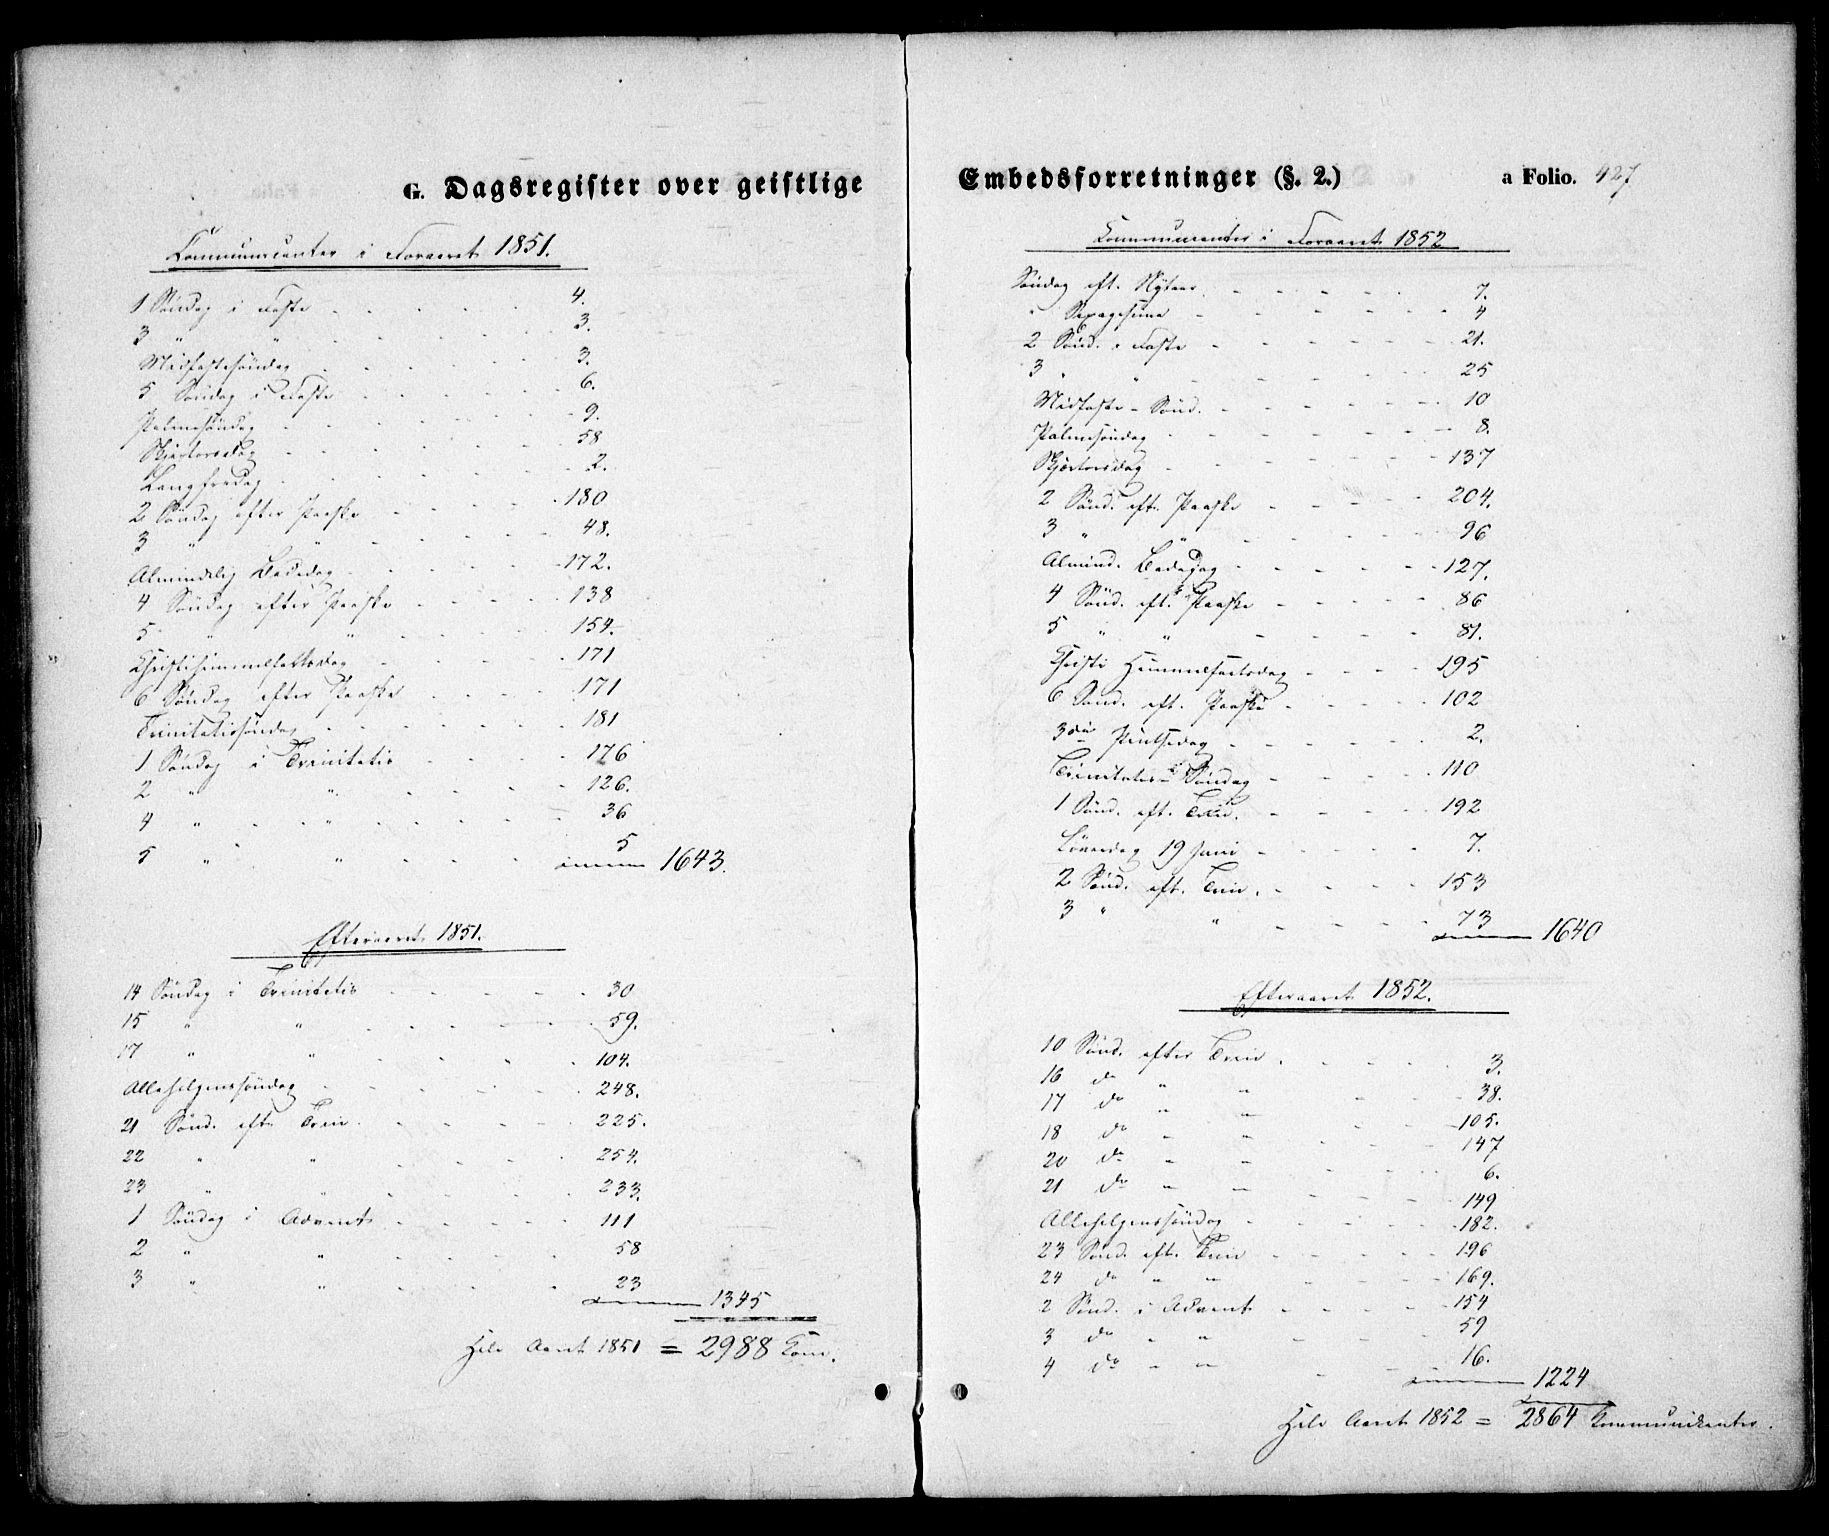 G. Dagsregister over geistlige
Communicanter i Foraaret 1851.
1 Søndag i Faste - - - - 4.
3 " " - - - - 3.
Midfastesøndag - - - - 3.
5 Søndag i Faste - - - - 6.
Palmesøndag - - - - 9.
Skjærtorsdag - - - - 58
Langfredag - - - - 2.
2 Søndag efter Paaske - - - - 180
3 " " - - - - 48.
Almindelig Bededag - - - - 172.
4 Søndag efter Paaske - - - - 138
5 " " - - - - 154.
Christihimmelfartsdag - - - - 171
6 Søndag efter Paaske - - - - 171
Trinitatissøndag - - - - 181
1 Søndag i Trinitatis - - - - 176
2 " " - - - - 126.
4 " " - - - - 36
5 " " - - - - 5
1643.
Efteraaret 1851.
14 Søndag i Trinitatis - - - - 30
15 " " - - - - 59.
17 " " - - - - 104.
Allehelgenssøndag - - - - 248.
21 Sønd. eft. Trin. - - - - 225.
22 " " - - - - 254.
23 " " - - - - 233.
1 Søndag i Advent - - - - 111
2 " " - - - - 58
3 " " - - - - 23
1345
Hele Aaret 1851 = 2988 Com.
Embedsforretninger (§. 2.) a Folio. 427
Kommunicanter i Foraaret 1852
Søndag eft. Nytaar - - - - 7.
" Sexagesima - - - - 4
2 Sønd. i Faste - - - - 21.
3 " " - - - - 25
Midfaste-Sønd. - - - - 10
Palmesøndag - - - - 8.
Skjærtorsdag - - - - 137
2 Sønd. eft. Paaske - - - - 204.
3 " " - - - - 96
Almind. Bededag - - - - 127.
4 Sønd. eft. Paaske - - - - 86
5 " " - - - - 81.
Christi Himmelfartsdag - - - 195
6 Sønd. eft. Paaske - - - - 102
3die Pintsedag - - - - 2.
Trinitatis-Søndag - - - - 110
1 Sønd. eft. Trin. - - - - 192
Løverdag 19 Juni - - - - 7.
2 Sønd. eft. Trin. - - - - 153
3 " " - - - - 73
1640
Efteraaret 1852.
10 Sønd. efter Trin. - - - - 3.
16 do " " - - - - 38.
17 do " " - - - - 105.
18 do " " - - - - 147
20 do " " - - - - 6.
21 do " " - - - - 149
Allehelgenssøndag - - - - 182.
23 Sønd. eft. Trin - - - - 196
24 do " " - - - - 169.
2 Sønd. i Advent - - - - 154
3 do " " - - - - 59
4 do " " - - - - 16.
1224
Hele Aaret 1852 = 2864 Kommunikanter.